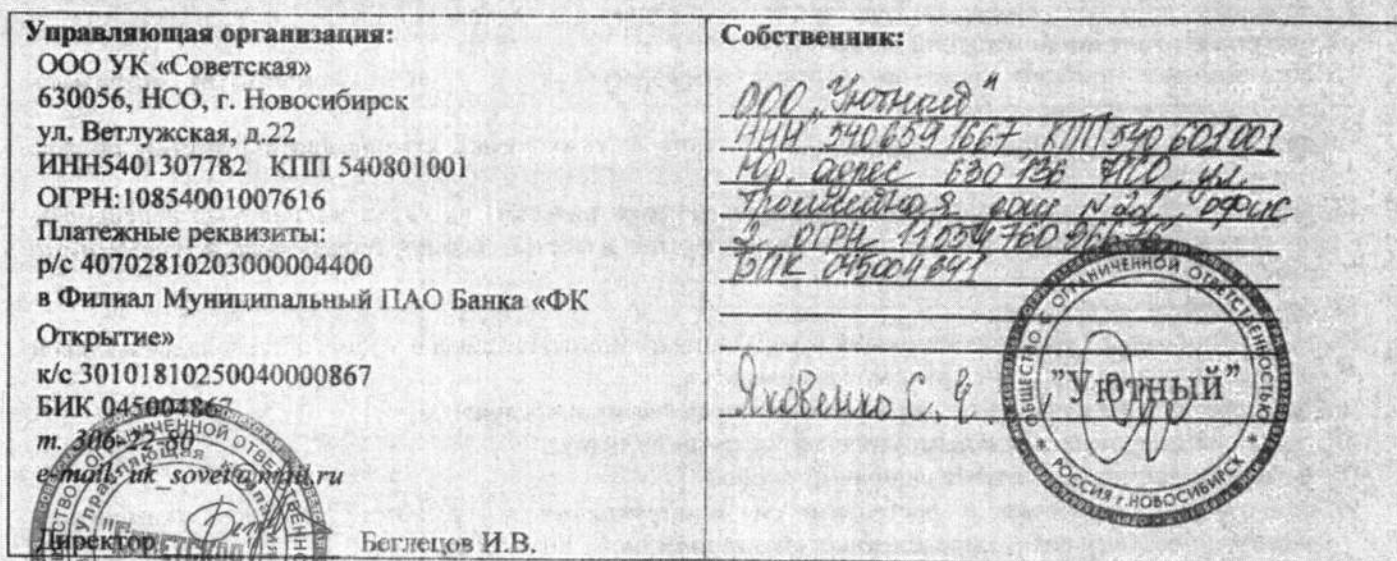 Управляющая организация:
ООО УК «Советская»
630056, НСО, г. Новосибирск
ул. Ветлужская, д.22
ИНН5401307782 КПП 540801001
ОГРН:10854001007616
Платежные реквизиты:
р/с 40702810203000004400
в Филиал Муниципальный ПАО Банка «ФК
Открытие»
к/с 30101810250040000867
БИК 045004867
т. 306-22-80
e-mail: uk_sovet@mail.ru
Директор Беглецов И.В.
Собственник:
ООО "Уютный"
ИНН 5406591667 КПП 540601001
Юр. адрес 630 136 НСО, ул.
дом №22, офис
2 ОГРН
БИК 045004641
Яковенко С. Е.
ОБЩЕСТВО С ОГРАНИЧЕННОЙ ОТВЕТСТВЕННОСТЬЮ
"Уютный"
РОССИЯ г.НОВОСИБИРСК